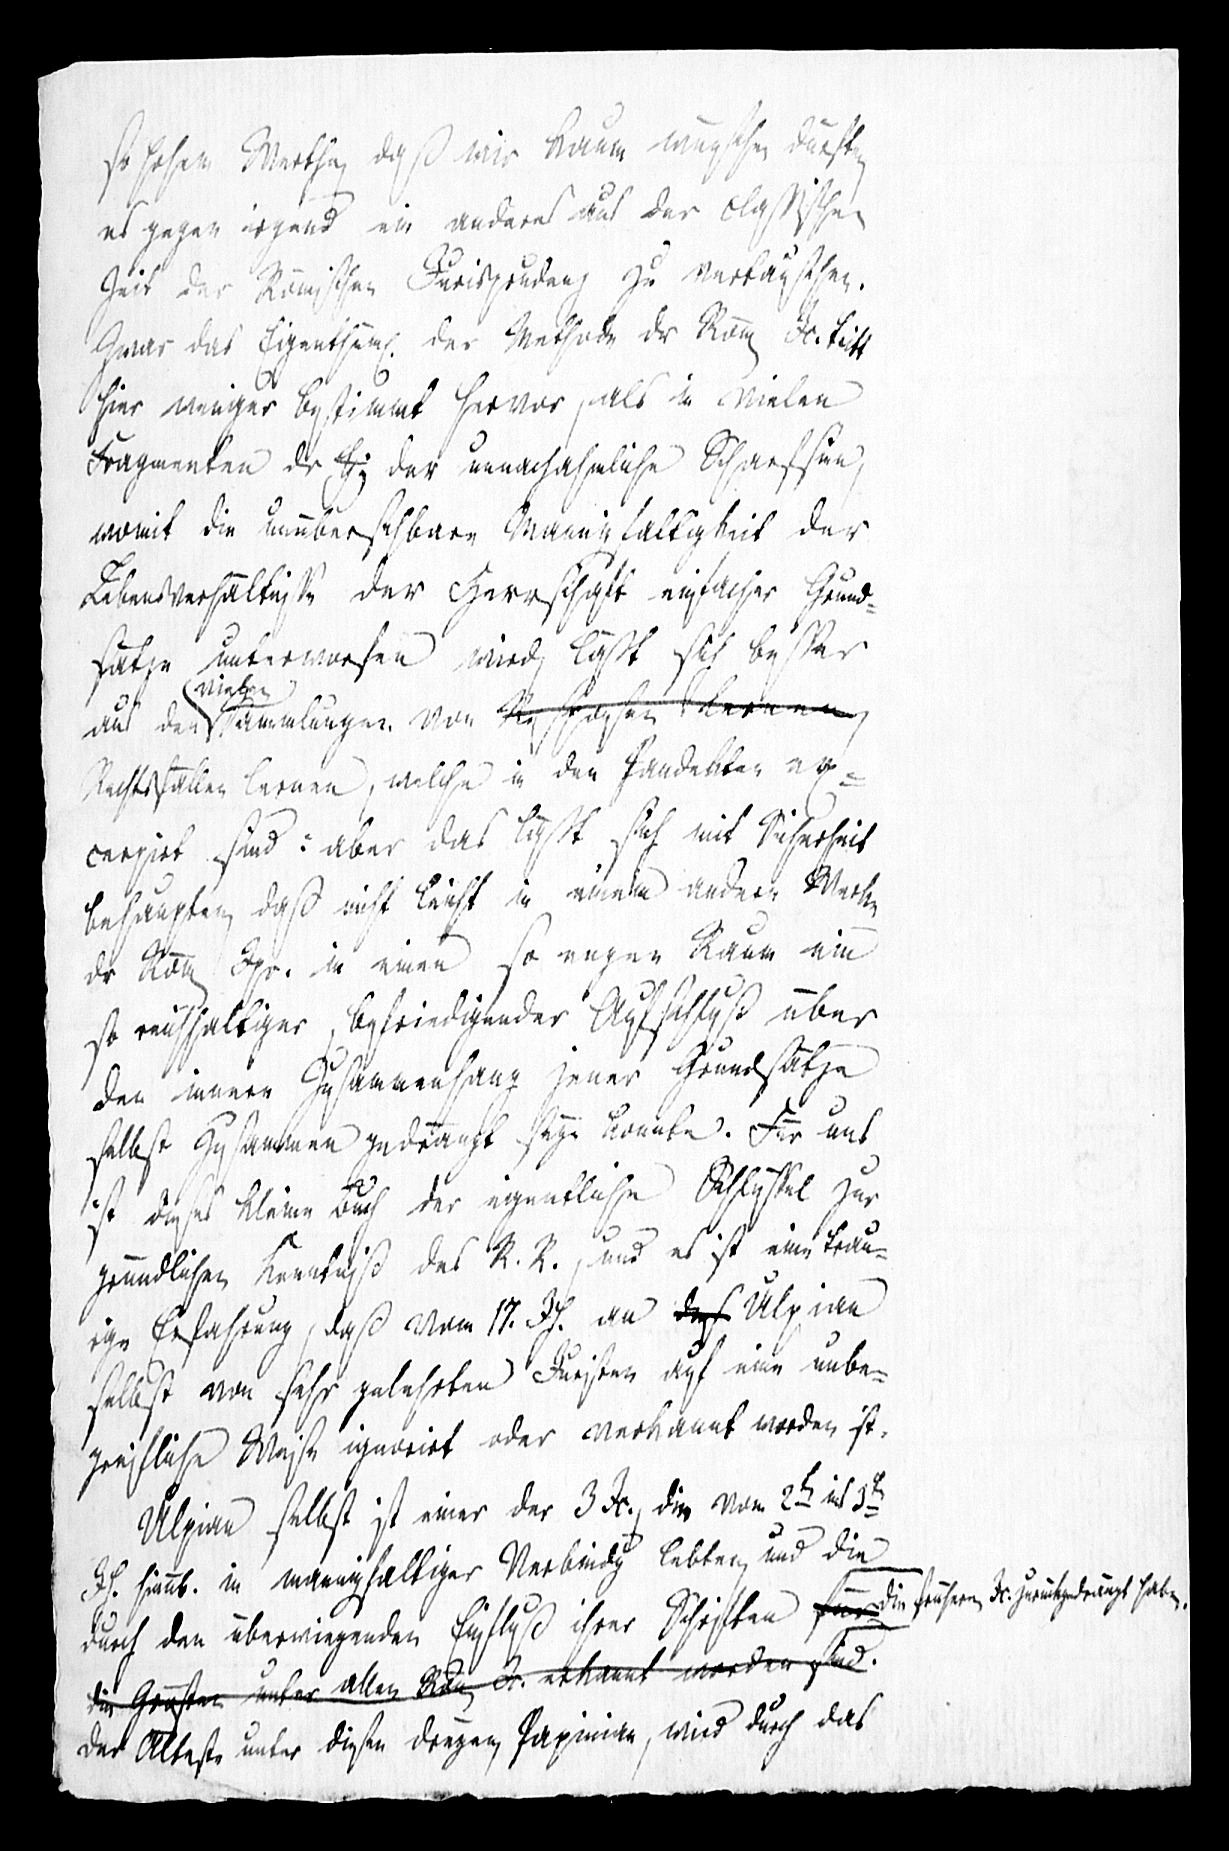 so hohem Werthe, daß wir kaum wünschen dürften
es gegen irgend ein anderes aus der classischen
Zeit der Römischen Jurisprudenz zu vertauschen.
Zwar das Eigenthüml. der Methode der Röm. Jc. tritt
hier weniger bestimmt hervor, als in vielen
Fragmenten der der unnachahmliche Scharfsinn,
womit die unübersehbare Mannigfaltigkeit der
Lebensverhältnisse der Herrschaft einfacher Grund-
sätze unterworfen wird, läßt sich besser
aus den vielen Sammlungen von
Rechtsfällen lernen, welche in den Pandekten ex-
cerpirt sind: aber das läßt sich mit Sicherheit
behaupten, daß nicht leicht in einem andern Werke
der Röm. Jpr. in einen so engen Raum ein
so reichhaltiger, befriedigender Aufschluß über
den innern Zusammenhang jener Grundsätze
selbst zusammen gedrängt seyn konnte. Für uns
ist dieses kleine Buch der eigentliche Schlüssel zur
gründlichen Kenntniß des R. R., und es ist eine trau-
rige Erfahrung, daß vom 17. Jh. an Ulpian
selbst von sehr gelehrten Juristen auf eine unbe-
greifliche Weise ignorirt oder verkannt worden ist.
Ulpian selbst ist einer der 3 Jc., die vom 2t ins 3t
Jh. hinüb. in mannigfaltiger Verbindg lebten, und die
durch den überwiegenden Einfluß ihrer Schriften für die frühern Jc. zurückgedrängt haben.
die Größten unter allen Röm. Jc. erkannt worden sind.
Der Älteste unter diesen dreyen, Papinian, wird durch das